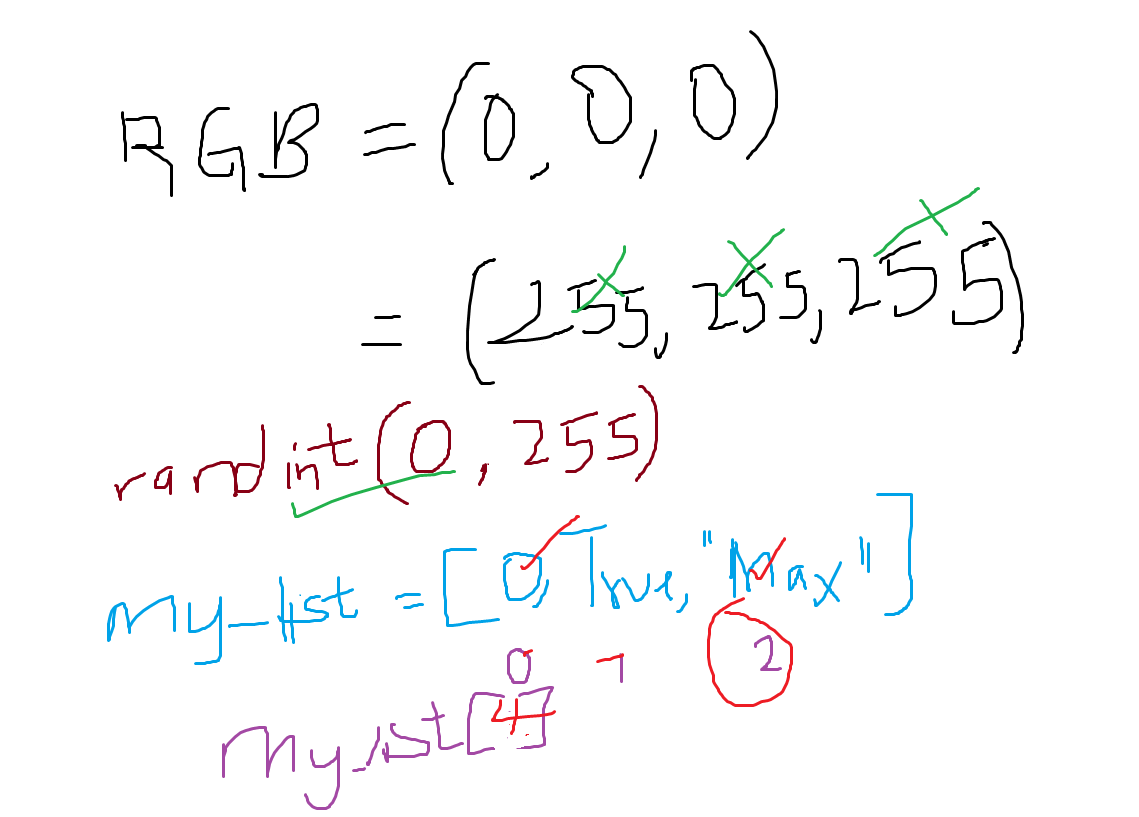 RGB = (0, 0, 0)
= (255, 255, 255)
randint(0, 255)
my_list = [0, True, "Max"]
0 1 2
my_list[4]